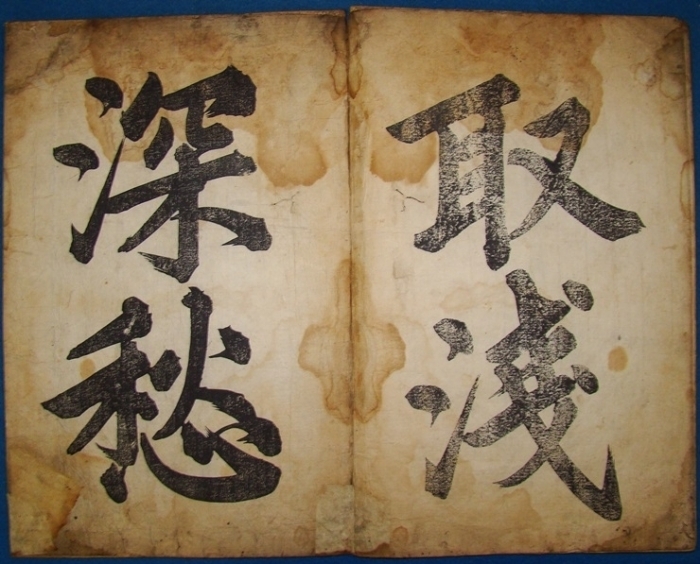 取淺
深愁